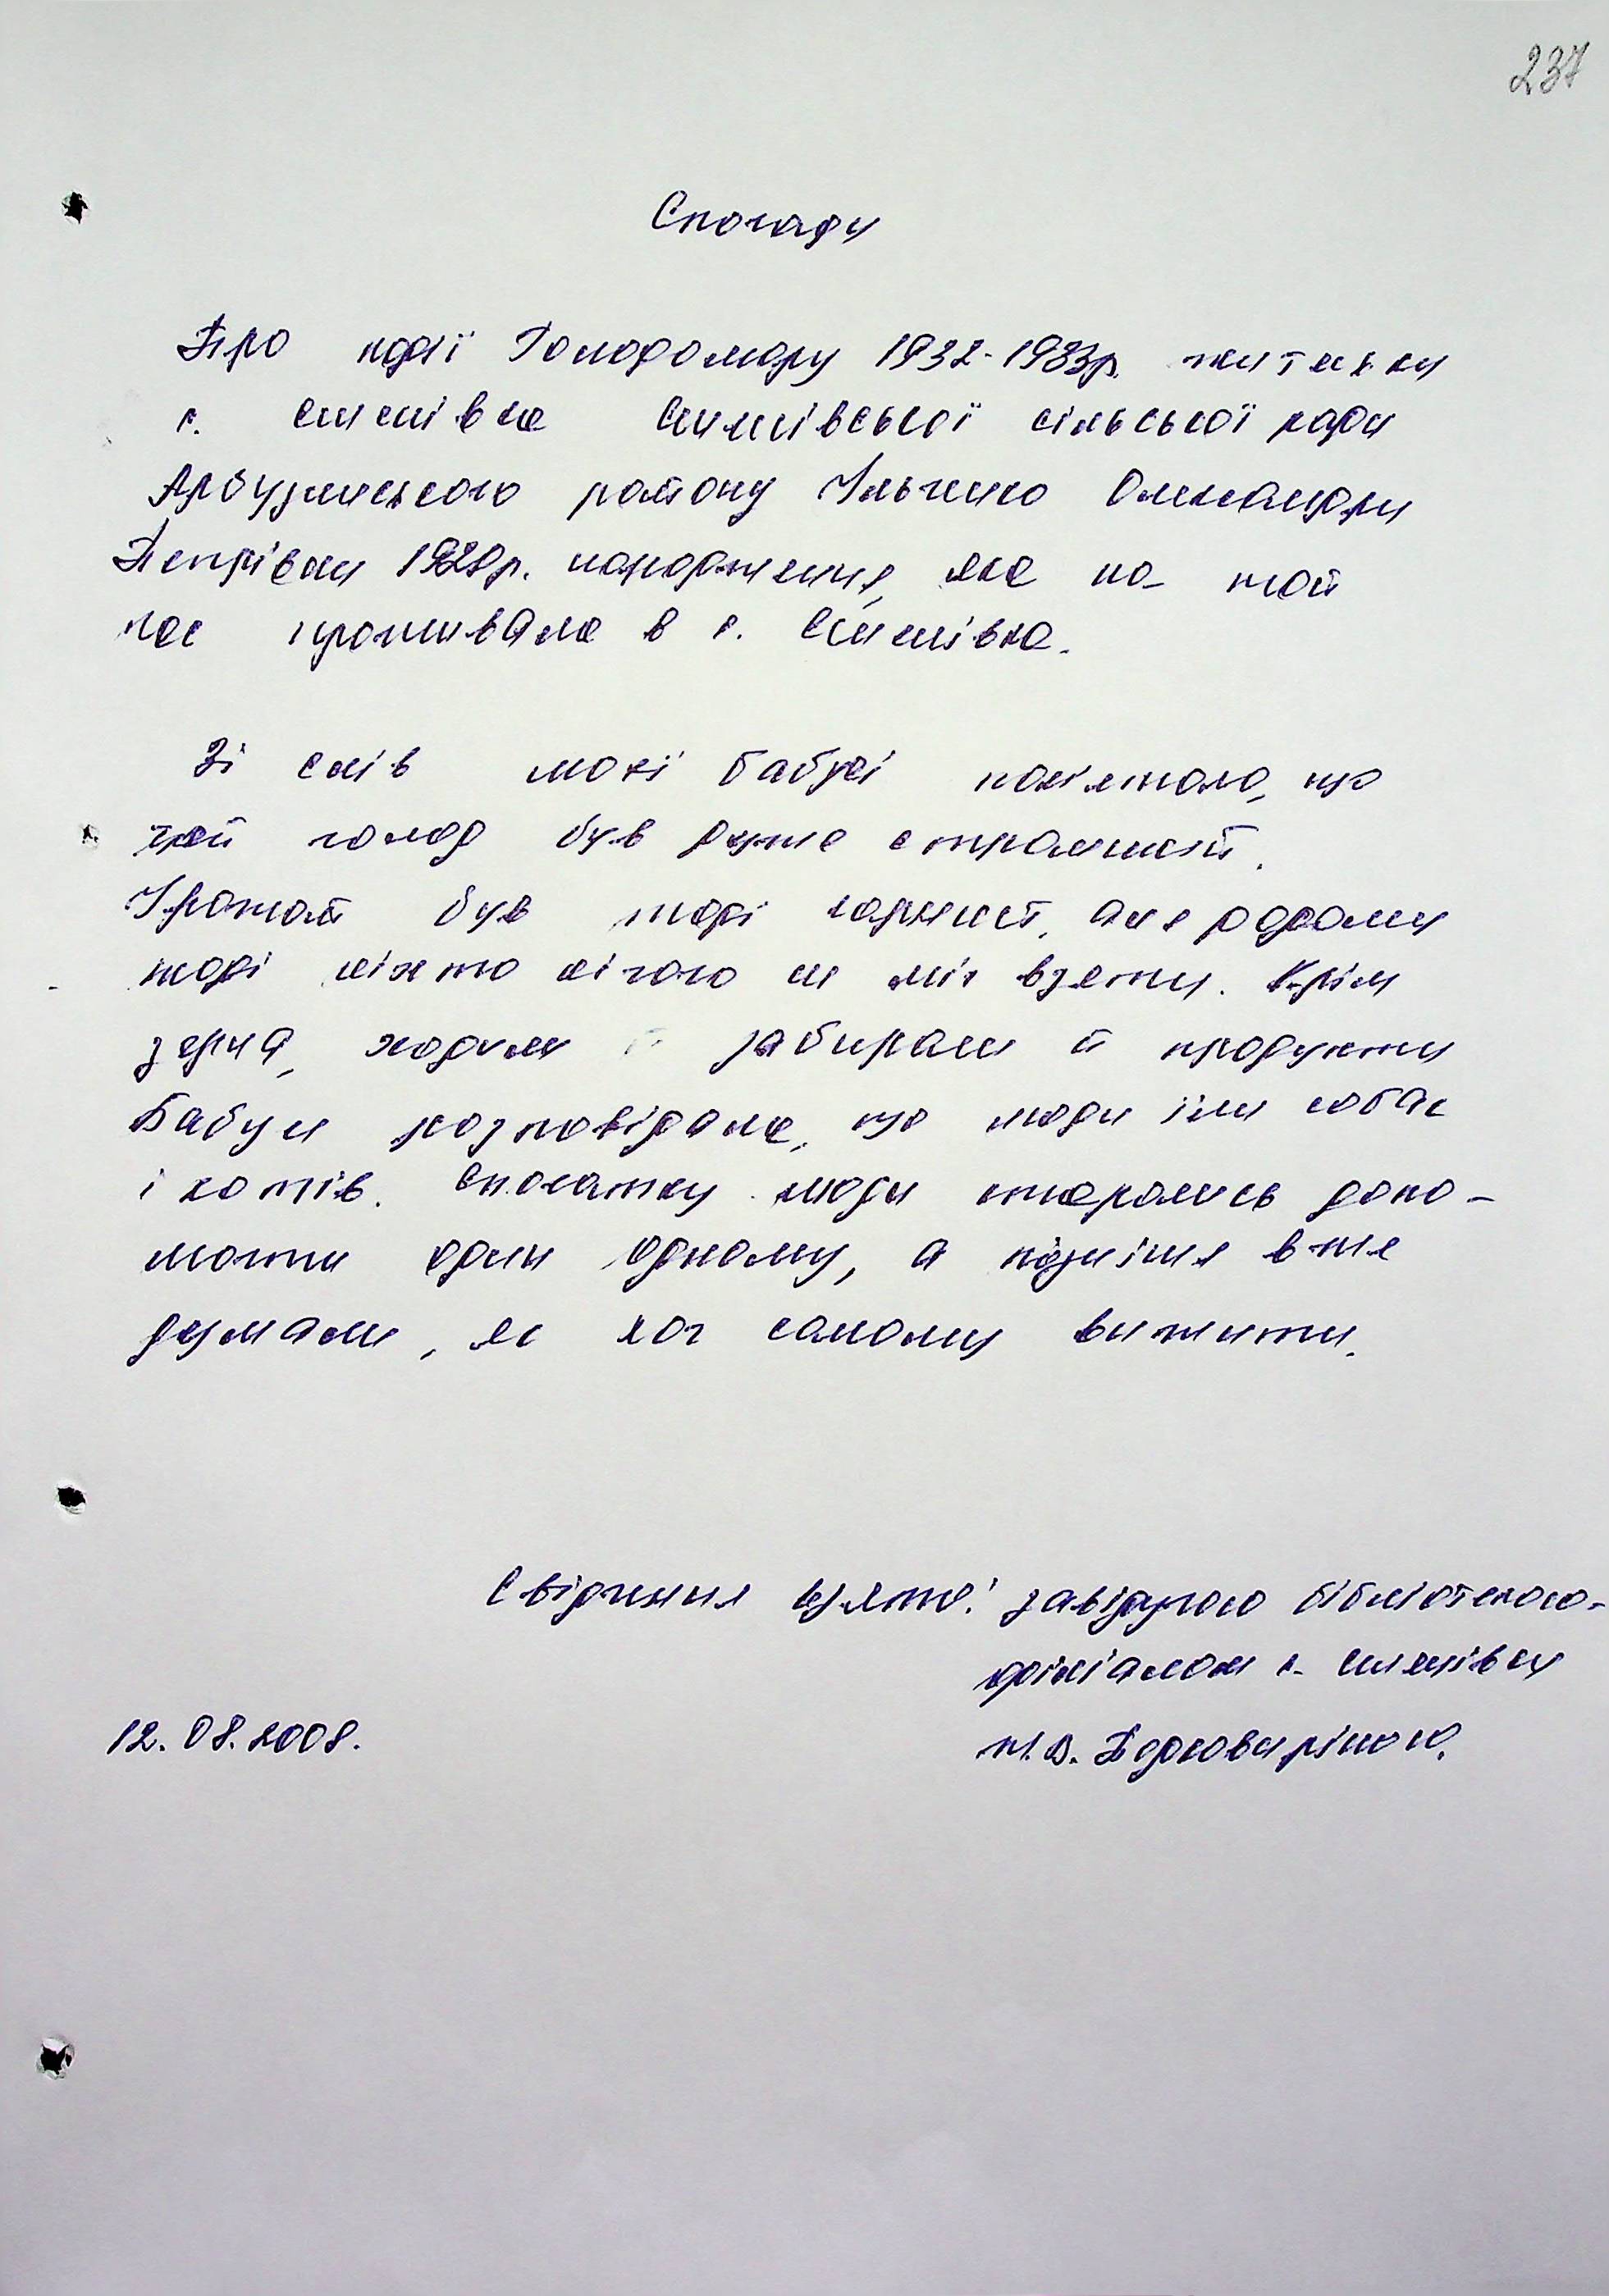 237
Спогади
Про події Голодомору 1932-1933р. жительки
с. Семенівка Семенівської сільської ради
Арбузинського району Ільченко Олександри
Петрівни народження, яка на той
час проживала в с. Семенівка.
Зі слів моєї бабусі пам'ятаю, що
цей голод був дуже страшний.
Урожай був тоді гарний, але додому
тоді ніхто нічого не міг взяти. Крім
зерна, ходили забирали й продукти
Бабуся розповідала, що люди їли собак
і котів. Спочатку люди старались допо-
могти один одному, а пізніше вже
думали, як хоч самому вижити.
Свідчення взято: завідуючою бібліотекою-
філіалом с. Семенівки
12.08.2008.